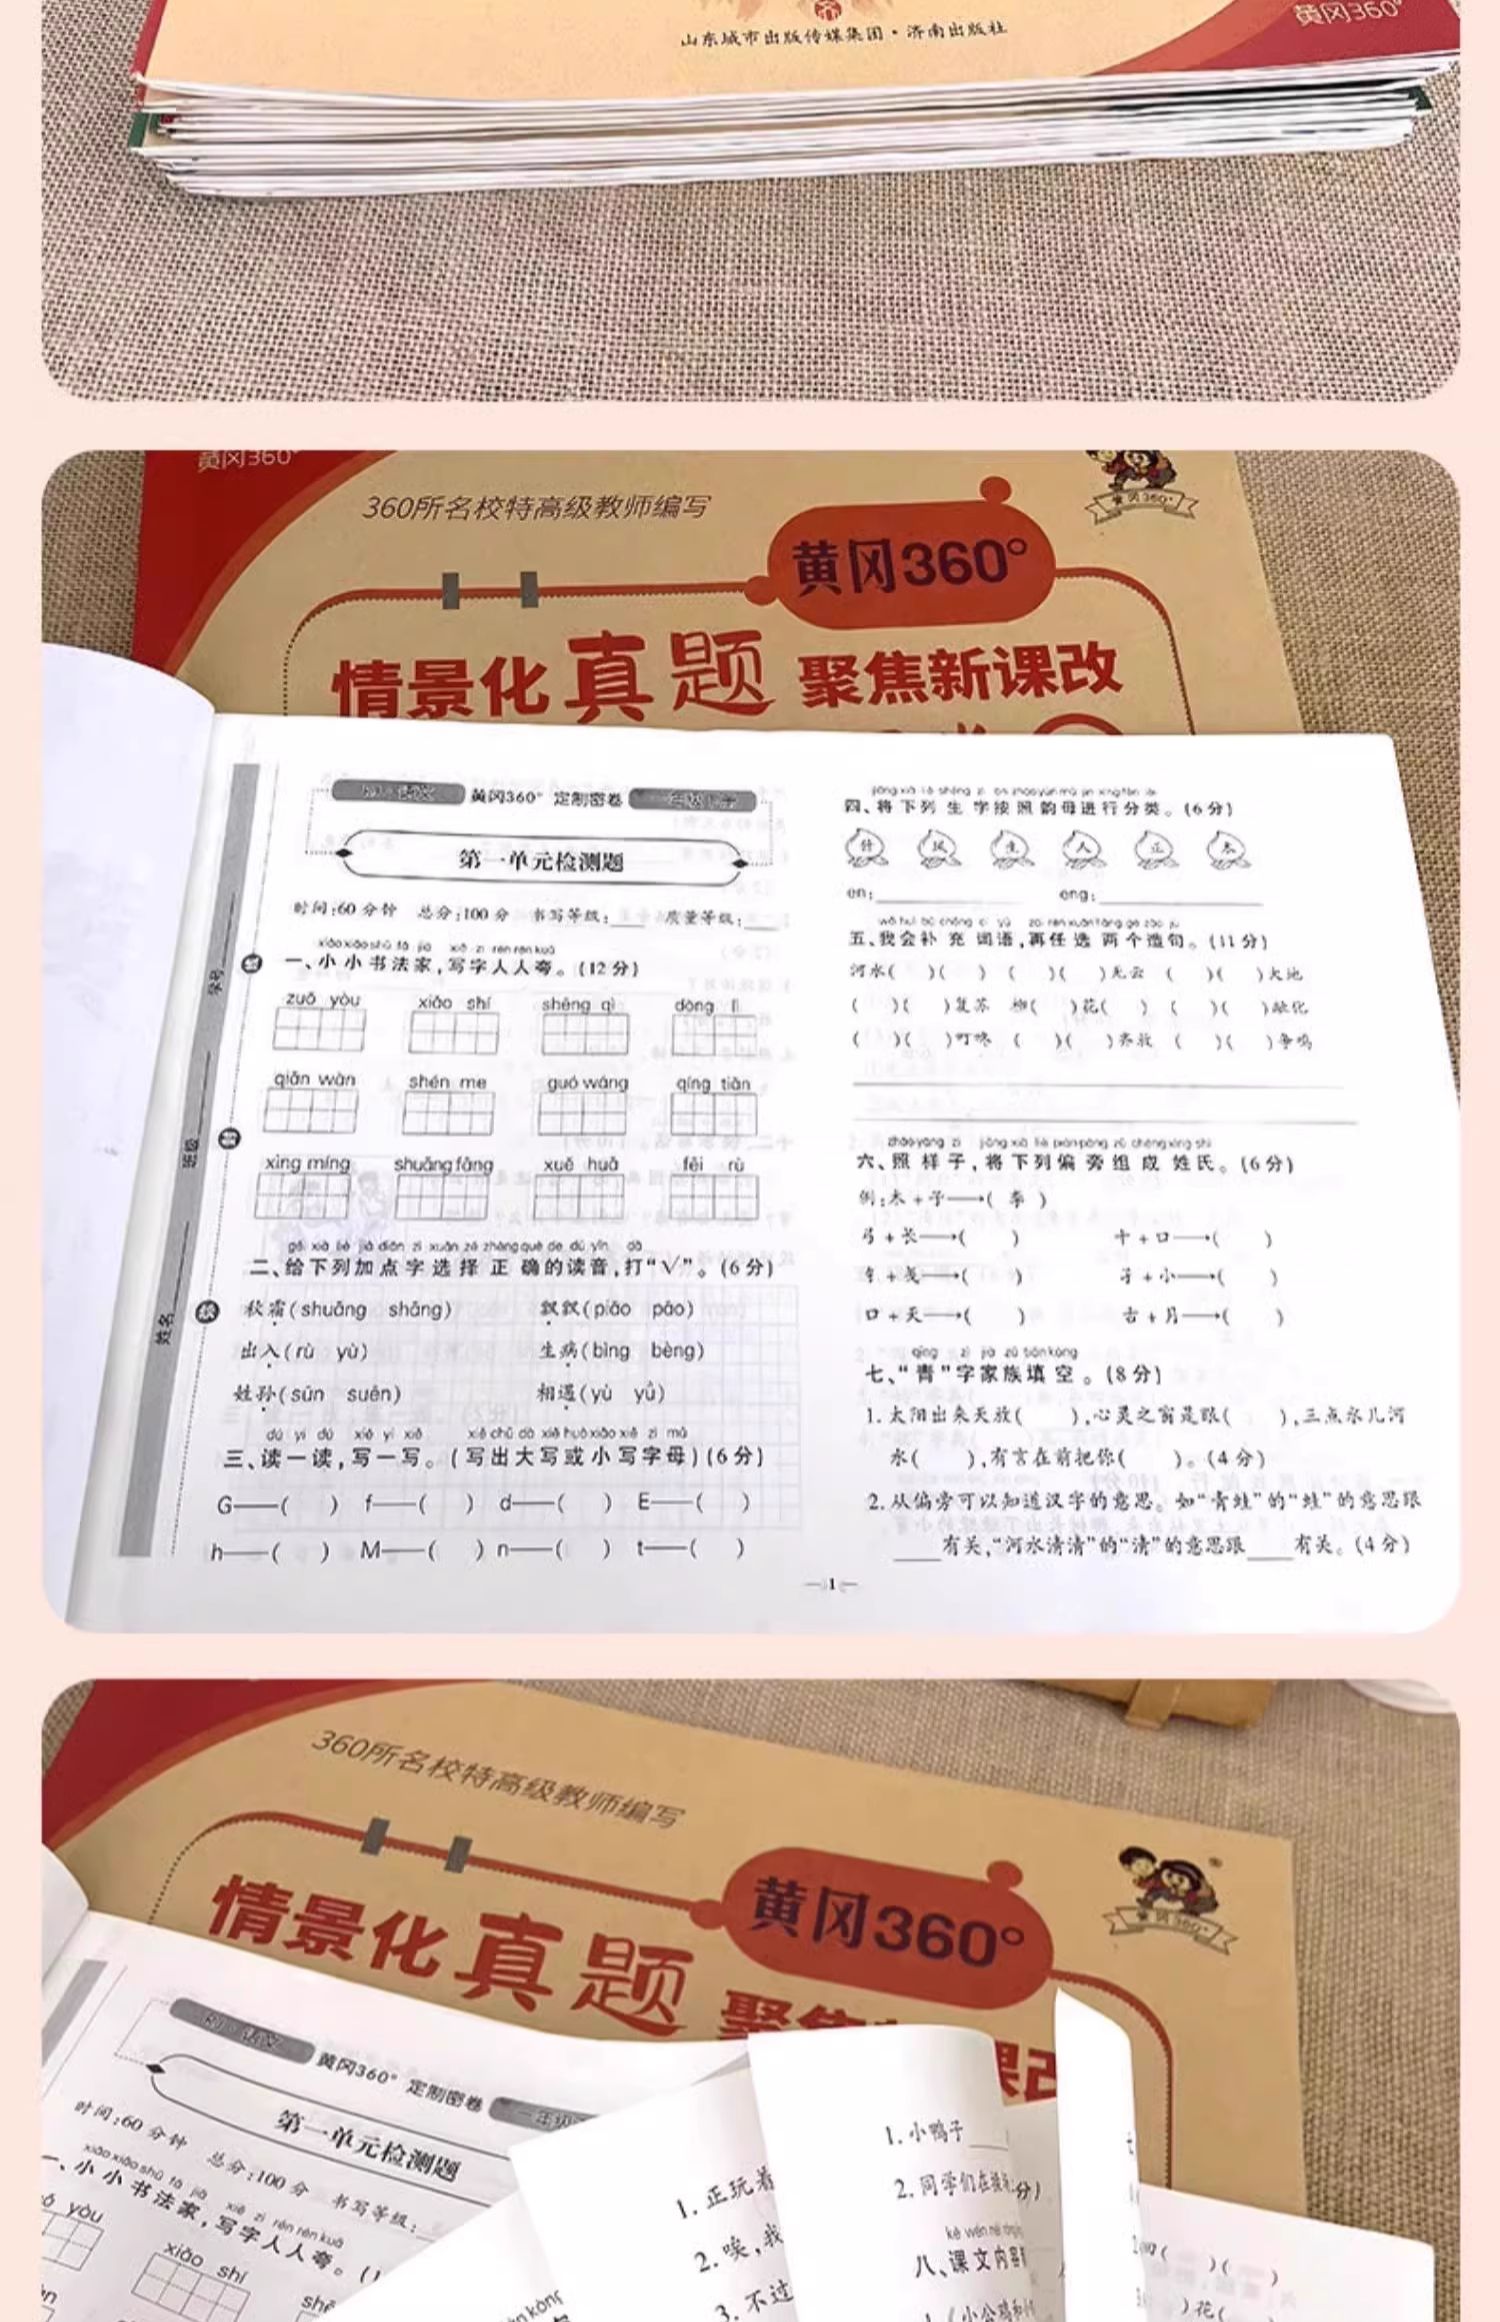 山东城市出版传媒集团·济南出版社
黄冈360°
黄冈360°
360所名校特高级教师编写
黄冈360°
黄冈360°
情景化真题 聚焦新课改
RJ·语文 黄冈360° 定制密卷
第一单元检测题
时间:60分钟 总分:100分 书写等级:____ 质量等级:____
学号
班级
姓名
xiǎo xiǎo shū fǎ jiā xiě zì rén rén kuā
一、小小书法家,写字人人夸。(12分)
zuǒ yòu xiǎo shí shēng qì dòng lì
qiān wàn shén me guó wáng qíng tiān
xìng míng shuāng fāng xuě huā fēi rù
gěi xià liè jiā diǎn zì xuǎn zé zhèng què de dú yīn dǎ
二、给下列加点字选择正确的读音,打“√”。(6分)
秋霜(shuāng shāng) 飘飘(piāo pāo)
出入(rù yù) 生病(bìng bèng)
姓孙(sūn suēn) 相遇(yù yǜ)
dú yi dú xiě yi xiě xiě chū dà xiě huò xiǎo xiě zì mǔ
三、读一读,写一写。(写出大写或小写字母)(6分)
G——( ) f——( ) d——( ) E——( )
h——( ) M——( ) n——( ) t——( )
四、将下列生字按照韵母进行分类。(6分)
什 风 生 人 正 本
en:________ eng:________
wǒ huì bǔ chōng cí yǔ zài rèn xuǎn liǎng gè zào jù
五、我会补充词语,再任选两个造句。(11分)
河水( )( ) ( )( )无云 ( )( )大地
( )( )复苏 柳( )花( ) ( )( )融化
( )( )叮咚 ( )( )齐放 ( )( )争鸣
zhào yàng zi jiāng xià liè piān páng zǔ chéng xìng shì
六、照样子,将下列偏旁组成姓氏。(6分)
例:木+子→( 李 )
弓+长→( ) 十+口→( )
钅+戋→( ) 孑+小→( )
口+天→( ) 古+月→( )
qīng zì jiā zú tián kòng
七、“青”字家族填空。(8分)
1.太阳出来天放( ),心灵之窗是眼( ),三点水儿河
水( ),有言在前把你( )。(4分)
2.从偏旁可以知道汉字的意思。如“青蛙”的“蛙”的意思跟
____有关,“河水清清”的“清”的意思跟____有关。(4分)
1
360所名校特高级教师编写
黄冈360°
黄冈360°
情景化真题 聚焦
课改
RJ·语文 黄冈360° 定制密卷 一年级
第一单元检测题
时间:60分钟 总分:100分 书写等级:
xiǎo xiǎo shū fǎ jiā xiě zì rén rén kuā
一、小小书法家,写字人人夸。(1
yòu xiǎo shí shē
1.正玩着
2.唉,我
3.不过
1.小鸭子____
2.同学们在
分)
八、课文内容
( )( )
)花(